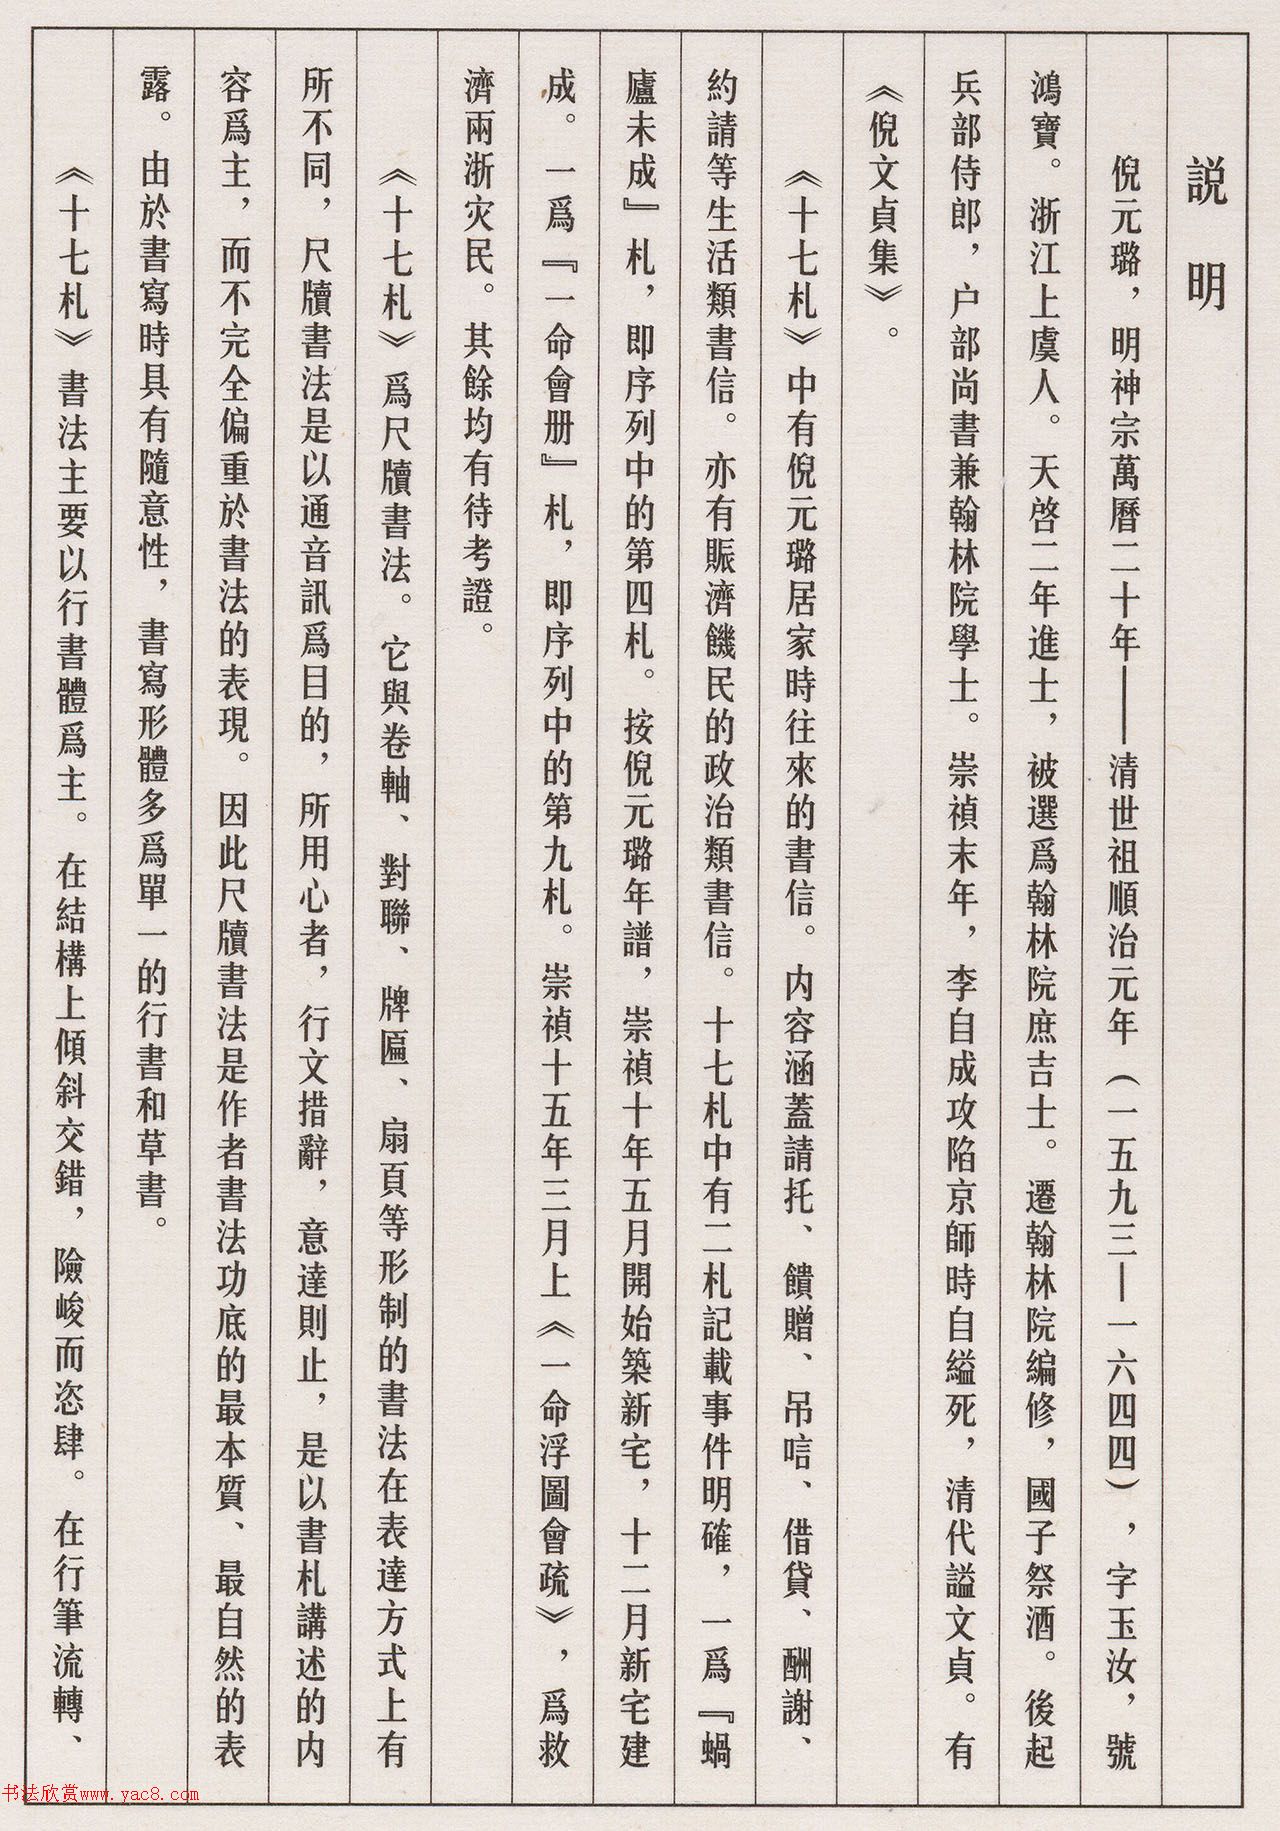 説明
倪元璐，明神宗萬曆二十年——清世祖順治元年（一五九三—一六四四），字玉汝，號
鴻寶。浙江上虞人。天啓二年進士，被選爲翰林院庶吉士。遷翰林院編修，國子祭酒。後起
兵部侍郎，户部尚書兼翰林院學士。崇禎末年，李自成攻陷京師時自縊死，清代謚文貞。有
《倪文貞集》。
《十七札》中有倪元璐居家時往來的書信。内容涵蓋請托、饋贈、吊唁、借貸、酬謝、
約請等生活類書信。亦有賑濟饑民的政治類書信。十七札中有二札記載事件明確，一爲『蝸
廬未成』札，即序列中的第四札。按倪元璐年譜，崇禎十年五月開始築新宅，十二月新宅建
成。一爲『一命會册』札，即序列中的第九札。崇禎十五年三月上《一命浮圖會疏》，爲救
濟兩浙灾民。其餘均有待考證。
《十七札》爲尺牘書法。它與卷軸、對聯、牌匾、扇頁等形制的書法在表達方式上有
所不同，尺牘書法是以通音訊爲目的，所用心者，行文措辭，意達則止，是以書札講述的内
容爲主，而不完全偏重於書法的表現。因此尺牘書法是作者書法功底的最本質、最自然的表
露。由於書寫時具有隨意性，書寫形體多爲單一的行書和草書。
《十七札》書法主要以行書體爲主。在結構上傾斜交錯，險峻而恣肆。在行筆流轉、
书法欣赏www.yac8.com